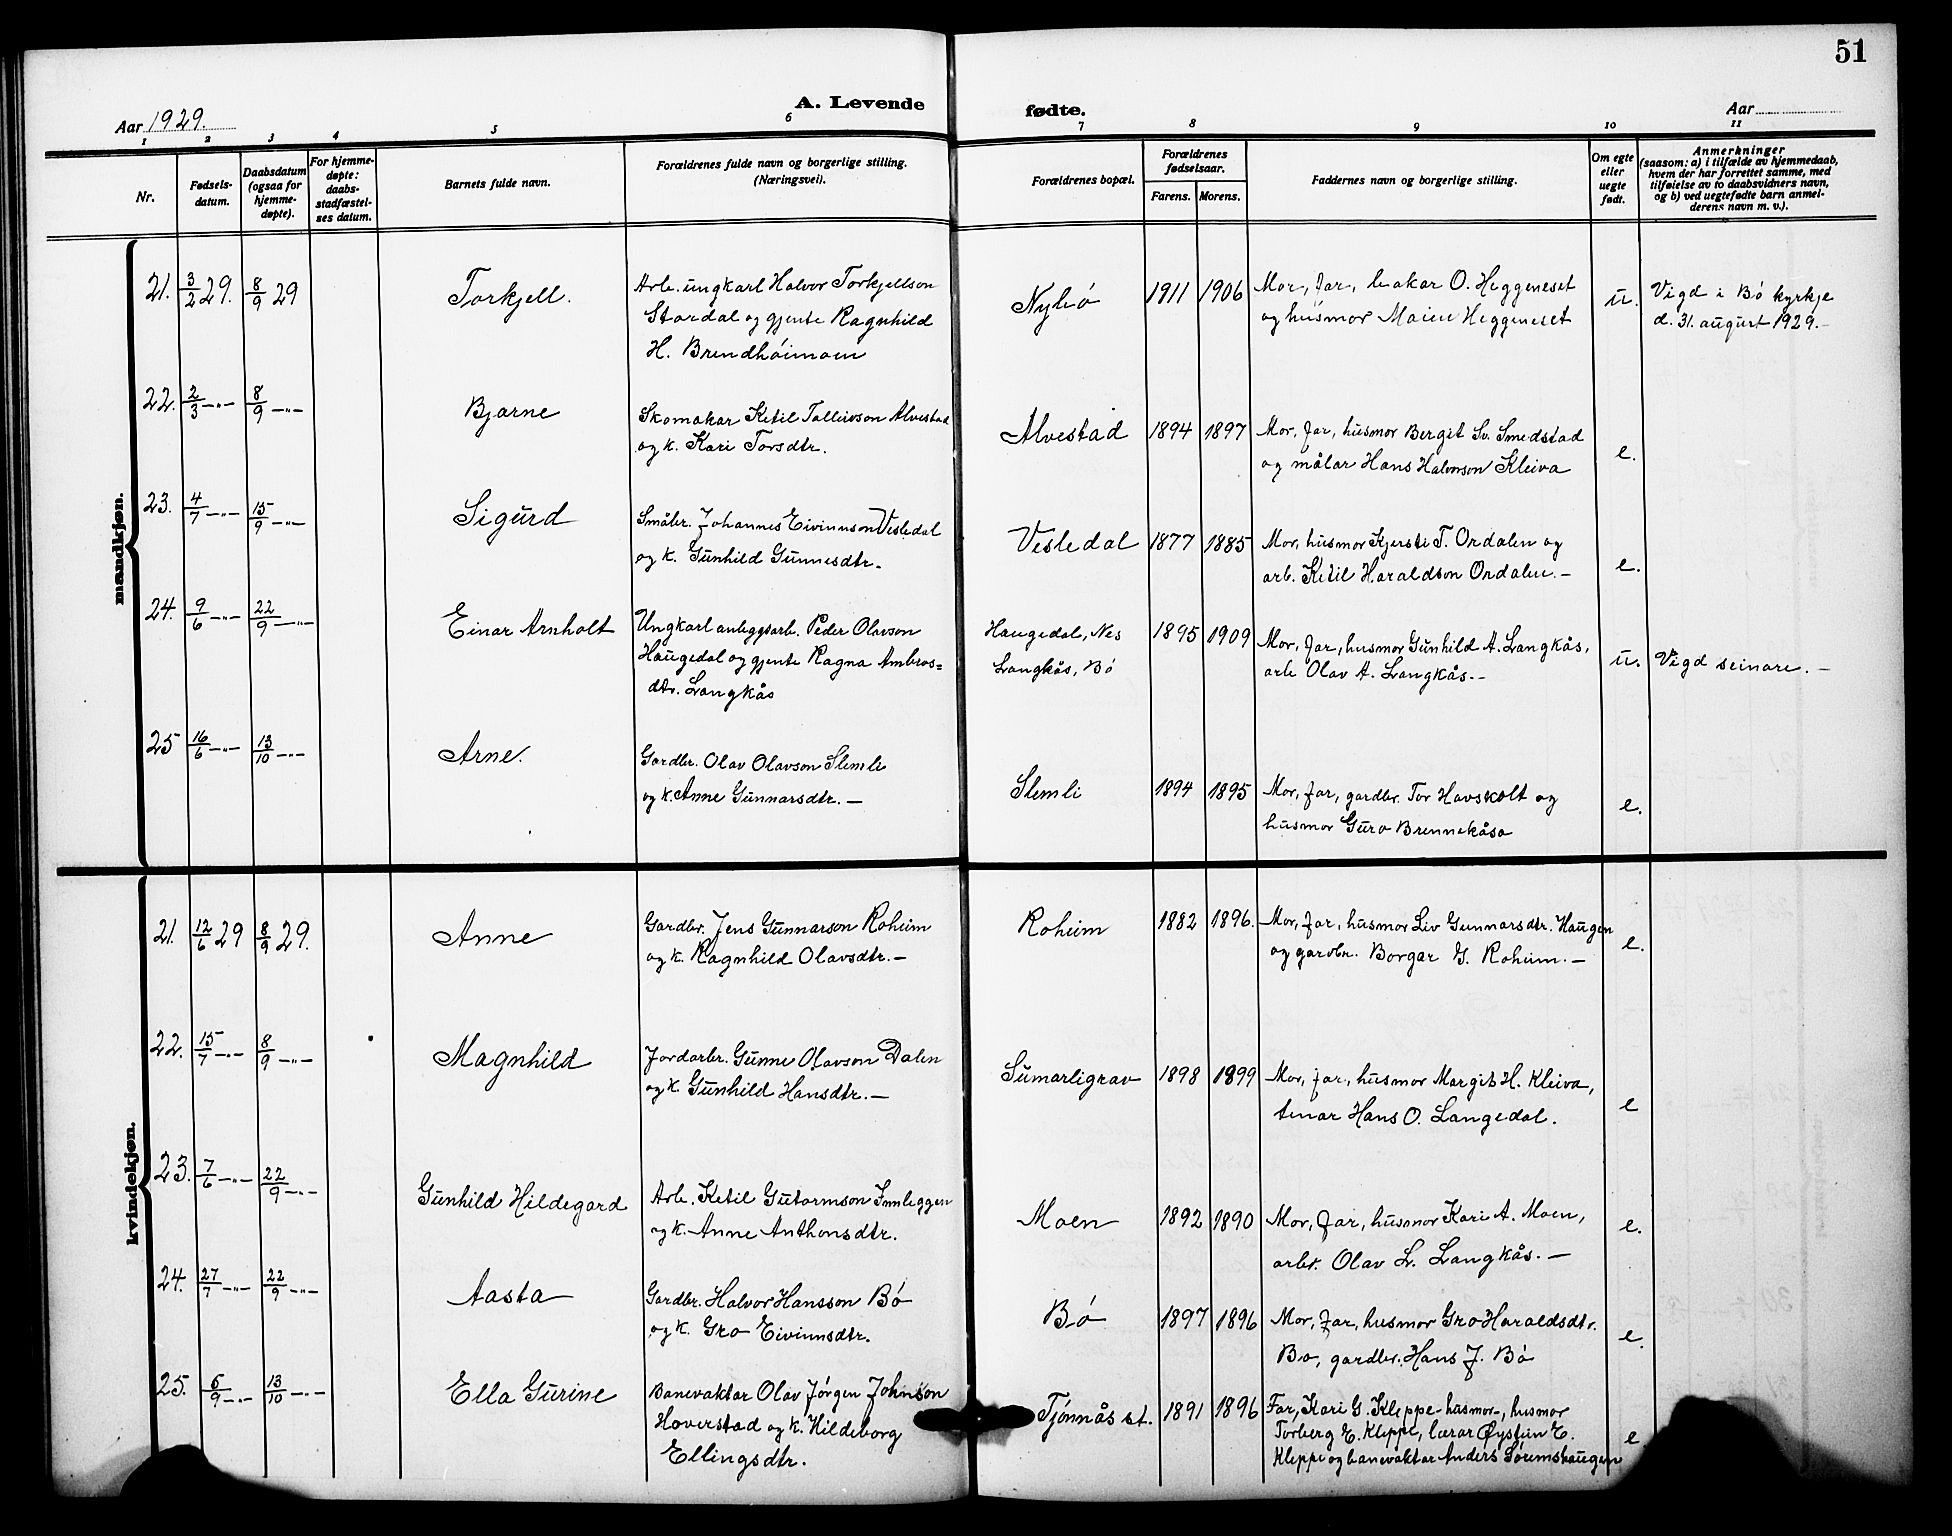 51
A. Levende fødte.
Aar 1929.
Aar
1 2 3 4 5 6 7 8 9 10 11
Nr.
Fødsels-
datum.
Daabsdatum
(ogsaa for
hjemme-
døpte).
For hjemme-
døpte:
daabs-
stadfæstel-
ses datum.
Barnets fulde navn.
Forældrenes fulde navn og borgerlige stilling.
(Næringsvei).
Forældrenes bopæl.
Forældrenes
fødselsaar.
Farens. Morens.
Faddernes navn og borgerlige stilling.
Om egte
eller
uegte
født.
Anmerkninger
(saasom: a) i tilfælde av hjemmedaab,
hvem der har forrettet samme, med
tilføielse av to daabsvidners navn,
og b) ved uegtefødte barn anmel-
derens navn m. v.).
mandkjøn.
21. 3/2 29. 8/9 29 Torkjell.
Arb. ungkarl Halvor Torkjellson
Stardal og gjente Ragnhild
H. Brendhøimoen
Nybø 1911 1906
Mor, far, bakar O. Heggeneset
og husmor Maien Heggeneset
u.
Vigd i Bø kyrkje
d. 31. august 1929.-
22. 2/3 -"- 8/9 -"- Bjarne
Skomakar Ketil Tolleivson Alvestad
og k. Kari Torsdtr.
Alvestad 1894 1897
Mor, far, husmor Bergit Sv. Smedstad
og målar Hans Halvorson Kleiva
e.
23. 4/7 -"- 15/9 -"- Sigurd
Småbr. Johannes Eivinnson Vesledal
og k. Gunhild Gunnesdtr.
Vesledal 1877 1885
Mor, husmor Kjersti T. Ordalen og
arb. Ketil Haraldson Ordalen.-
e.
24. 9/6 -"- 22/9 -"- Einar Arnholt
Ungkarl anleggsarb. Peder Olavson
Haugedal og gjente Ragna Ambros=
dtr. Langkås
Haugedal, Nes
Langkås, Bø
1895 1909
Mor, far, husmor Gunhild A. Langkås,
arb Olav A. Langkås.-
u. Vigd seinare.-
25 16/6 -"- 13/10 -"- Arne.
Gardbr. Olav Olavson Slemli
og k. Anne Gunnarsdtr.-
Slemli 1894 1895
Mor, far, gardbr. Tor Havskolt og
husmor Guro Brennekåsa
e.
kvindekjøn.
21. 12/6 29 8/9 29. Anne
Gardbr. Jens Gunnarson Roheim
og k. Ragnhild Olavsdtr.-
Roheim 1882 1896.
Mor, far, husmor Liv Gunnarsdtr. Haugen
og gardbr. Borgar G. Roheim.-
e.
22. 15/7 -"- 8/9 -"- Magnhild
Jordarbr. Gunne Olavson Dalen
og k. Gunhild Hansdtr.-
Sumarligrav 1898 1899
Mor, far, husmor Margit H. Kleiva,
tenar Hans O. Langedal.
e
23. 7/6 -"- 22/9 -"- Gunhild Hildegard
Arb. Ketil Gutormson Innleggen
og k. Anne Anthonsdtr.
Moen 1892 1890
Mor, far, husmor Kari A. Moen,
arbr. Olav L. Langkås.-
e.
24. 27/7 -"- 22/9 -"- Aasta
Gardbr. Halvor Hansson Bø
og k. Gro Eivinnsdtr.
Bø 1897 1896
Mor, far, husmor Gro Haraldsdtr.
Bø, gardbr. Hans J. Bø
e.
25. 6/9 -"- 13/10 -"- Ella Gurine
Banevaktar Olav Jørgen Johnson
Haverstad og k. Hildeborg
Ellingsdtr.
Tjønnås st. 1891 1896
Far, Kari G. Kleppe -husmor-, husmor
Torberg E. Kleppe, lærar Øystein E.
Kleppe og banevaktar Anders Sørumshaugen
e.